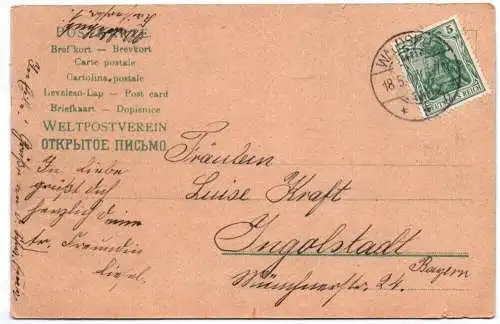 POSTKARTE
Brefkort – Brevkort
Carte postale
Cartolina postale
Levelezo-Lap – Post card
Briefkaart – Dopisnice
WELTPOSTVEREIN
ОТКРЫТОЕ ПИСЬМО
5
DEUTSCHES REICH
18.5.
In Liebe
grüßt dich
herzlich deine
tr. Freundin
Liesel.
Fräulein
Luise Kraft
Ingolstadt
Bayern
Münchnerstr. 24.